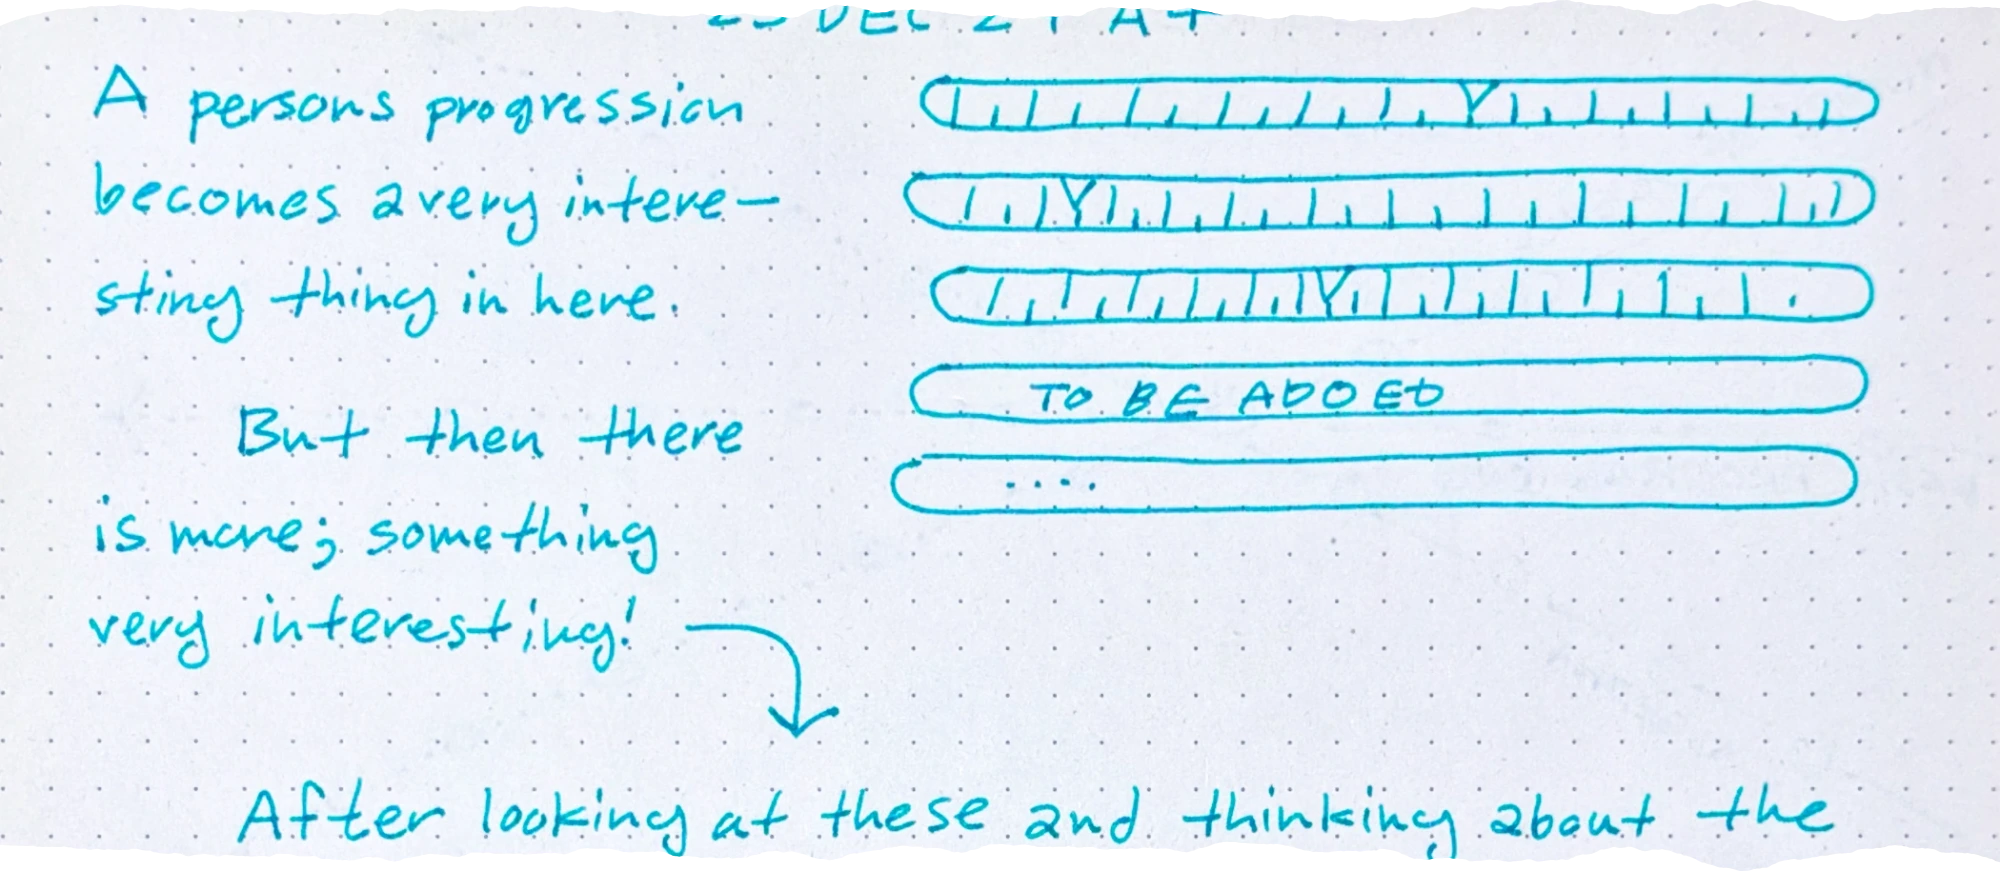 DEC
A persons progression
becomes a very intere-
sting thing in here.
TO BE ADDED
....
But then there
is more; something
very interesting!
After looking at these and thinking about the